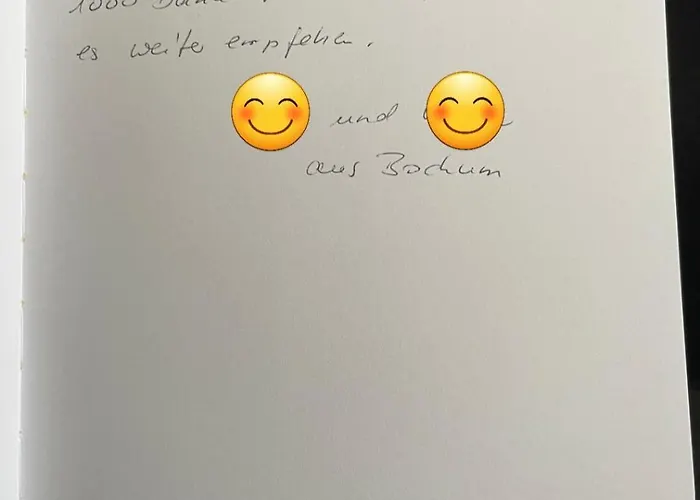 1000 Dank
es weiter empfehlen.
und
aus Bochum